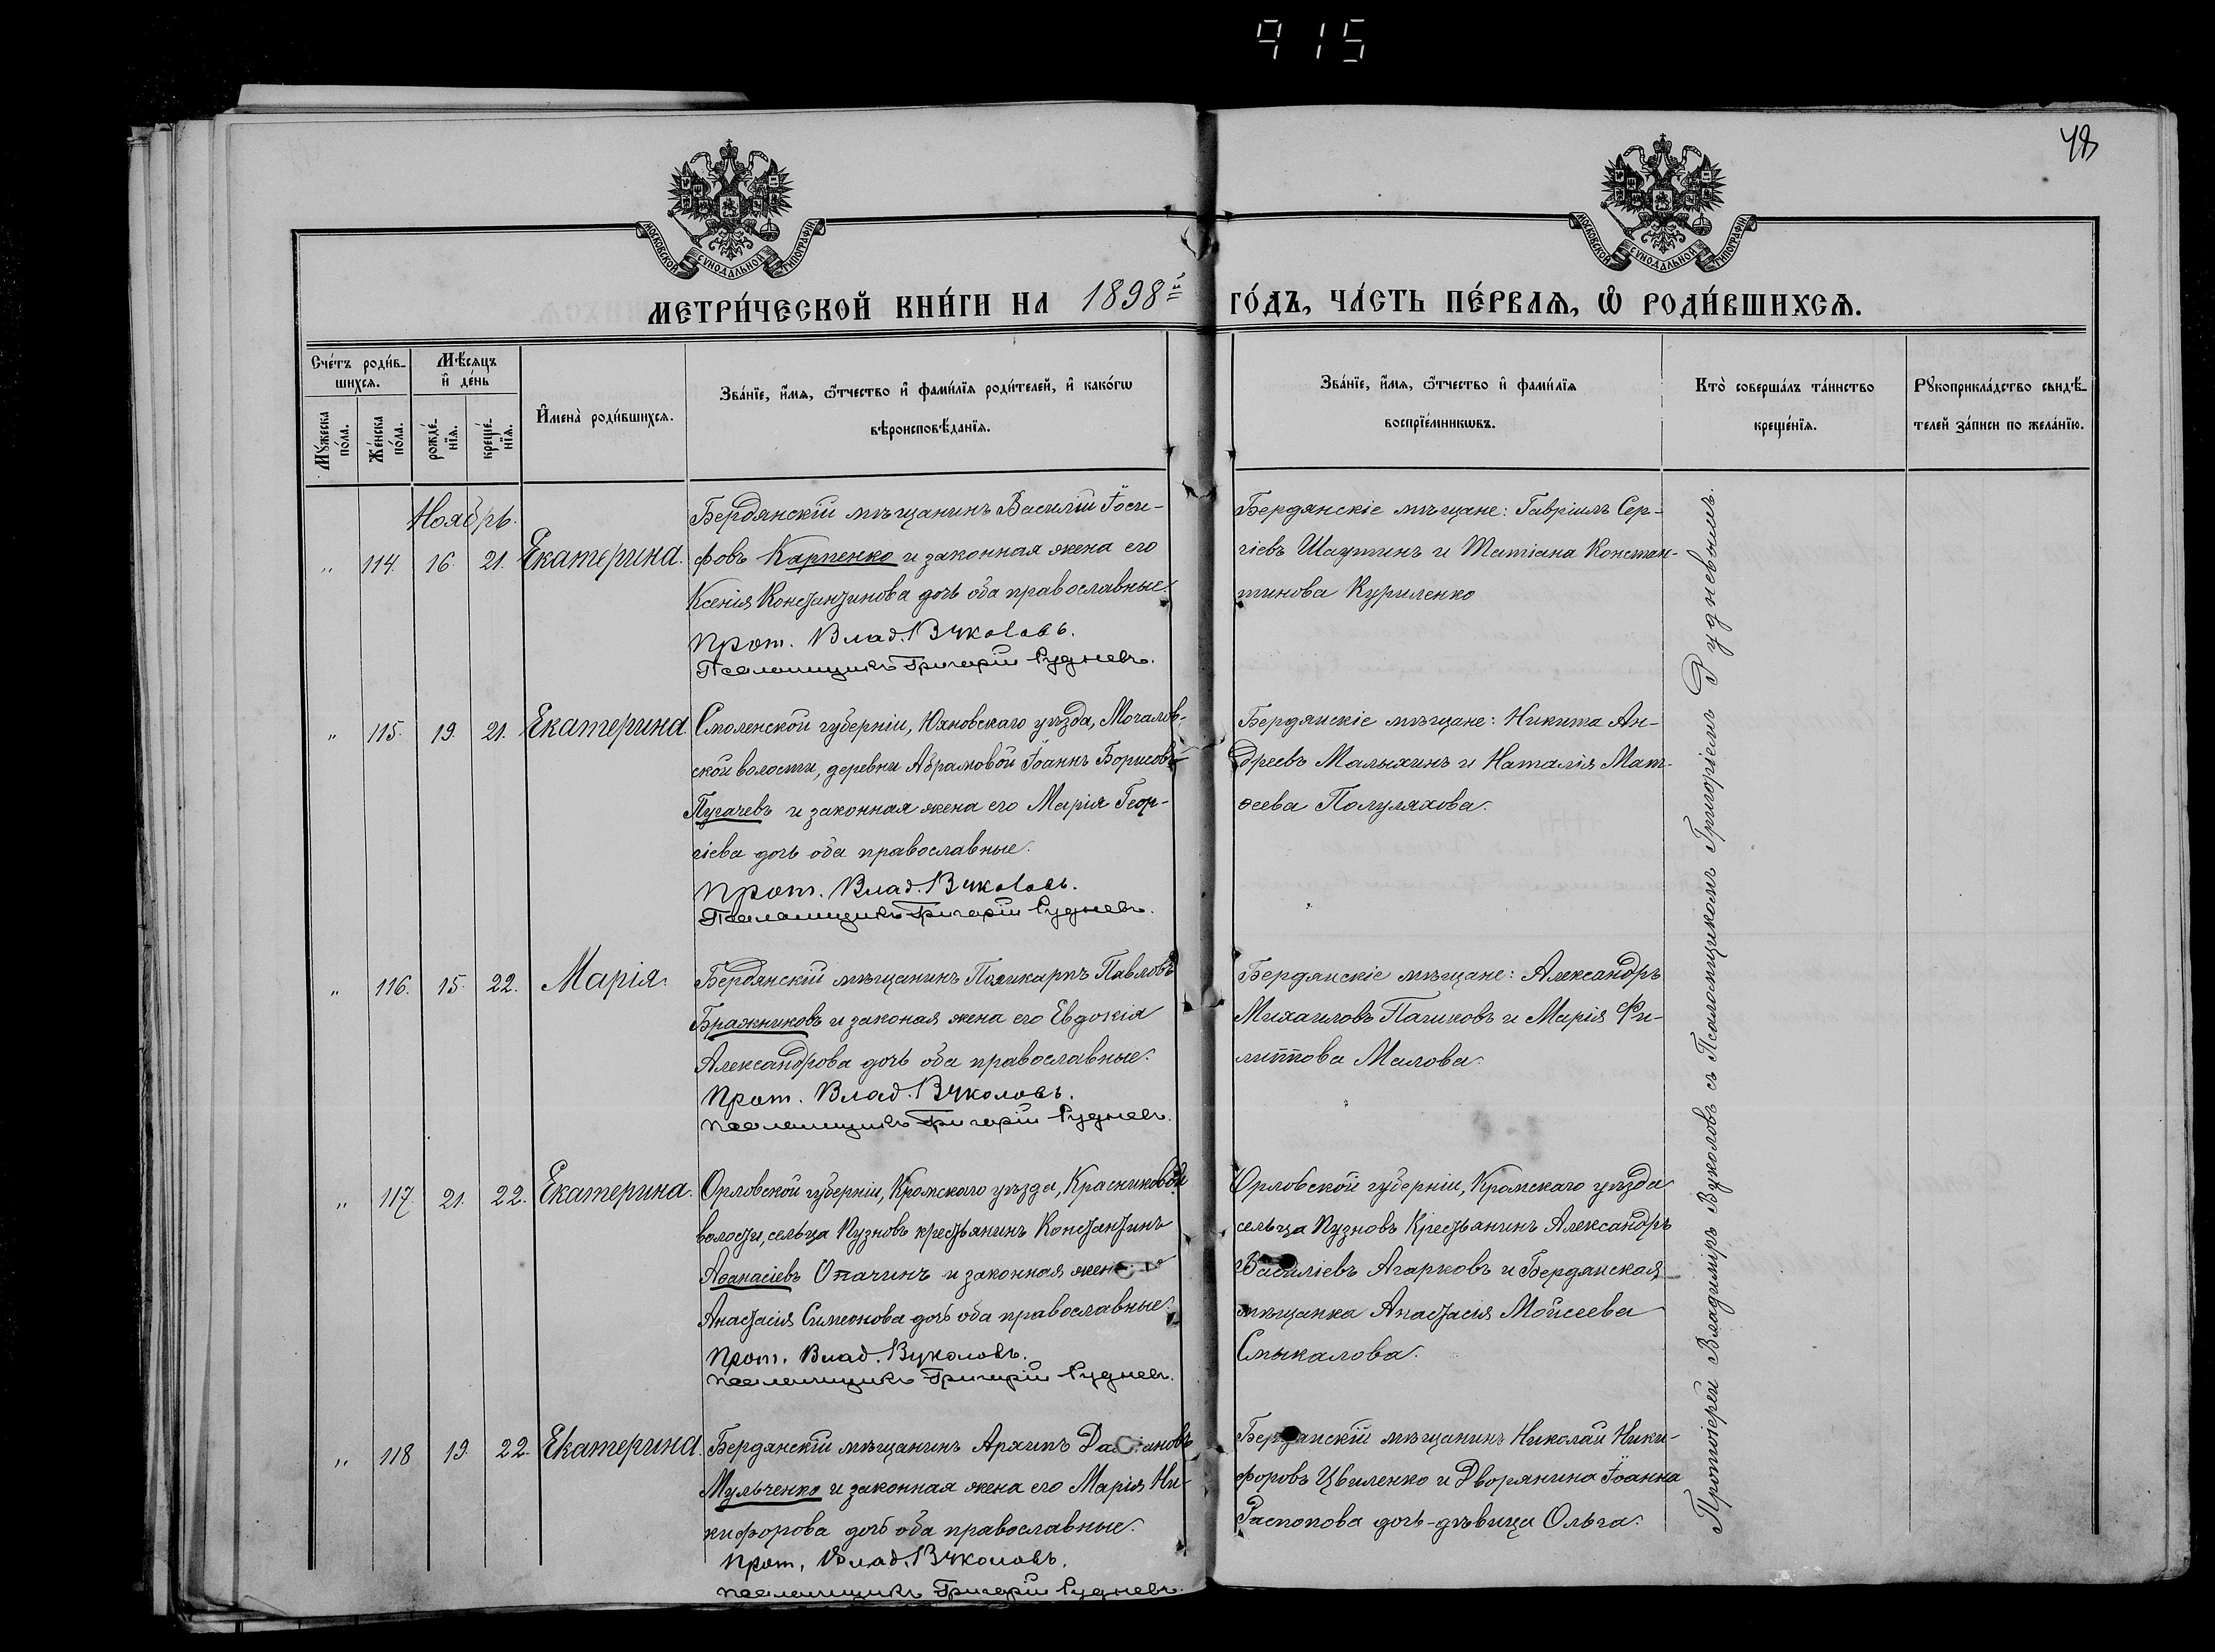 915
48
МОСКОВСКОЙ СУНОДАЛЬНОЙ ТИПОГРАФІИ
МОСКОВСКОЙ СУНОДАЛЬНОЙ ТИПОГРАФІИ
МЕТРИ́ЧЕСКОЙ КНИ́ГИ НА 1898й ГО́ДЪ, ЧА́СТЬ ПЕ́РВАѦ, Ѡ҆ РОДИ́ВШИХСѦ.
Сче́тъ роди́в-
шихсѧ.
Мꙋ́жеска
по́ла.
Же́нска
по́ла.
Мѣ́сѧцъ
и҆ де́нь
рожде́-
нїѧ.
креще́-
нїѧ.
И҆мена̀ роди́вшихсѧ.
Зва́нїе, и҆́мѧ, ѻ҆́тчество и҆ фами́лїѧ роди́телей, и҆ како́гѡ
вѣроисповѣ́данїѧ.
Зва́нїе, и҆́мѧ, ѻ҆́тчество и҆ фами́лїѧ
воспрїе́мникѡвъ.
Кто̀ соверша́лъ та́инство
креще́нїѧ.
Рꙋкоприкла́дство свидѣ́-
телей за́писи по жела́нїю.
Ноябрь.
" 114. 16. 21. Екатерина.
Бердянскій мѣщанинъ Василій Іоси-
фовъ Карпенко и законная жена его
Ксенія Константинова дочь оба православные.
Прот. Влад. Вуколовъ.
Псаломщикъ Григорій Рудневъ.
Бердянскіе мѣщане: Гавріилъ Сер-
гіевъ Шаутинъ и Татіана Констан-
тинова Куриленко
" 115. 19. 21. Екатерина.
Смоленской губерніи, Юхновскаго уѣзда, Мочалов-
ской волости, деревни Абрамовой Іоаннъ Борисовъ
Пугачевъ и законная жена его Марія Геор-
гіева дочь оба православные.
Прот. Влад. Вуколовъ.
Псаломщикъ Григорій Рудневъ.
Бердянскіе мѣщане: Никита Ан-
дреевъ Малыхинъ и Наталія Мат-
ѳеева Полуляхова.
" 116. 15. 22. Марія.
Бердянскій мѣщанинъ Поликарпъ Павловъ
Бражниковъ и законая жена его Евдокія
Александрова дочь оба православные.
Прот. Влад. Вуколовъ.
Псаломщикъ Григорій Рудневъ.
Бердянскіе мѣщане: Александръ
Михаиловъ Пачиковъ и Марія Фи-
липпова Малова.
" 117. 21. 22. Екатерина.
Орловской губерніи, Кромскаго уѣзда, Красниковой
волости, сельца Пузновъ крестьянинъ Константинъ
Аѳанасіевъ Опачинъ и законная жена
Анастасія Симеонова дочь оба православные.
Прот. Влад. Вуколовъ.
Псаломщикъ Григорій Рудневъ.
Орловской губерніи, Кромскаго уѣзда
сельца Пузновъ Крестьянинъ Александръ
Василіевъ Агарковъ и Бердянская
мѣщанка Анастасія Мойсеева
Смыкалова.
" 118 19 22. Екатерина.
Бердянскій мѣщанинъ Архипъ
Мульченко и законная жена его Марія Ни-
кифорова дочь оба православные.
Прот. Влад. Вуколовъ.
Псаломщикъ Григорій Рудневъ.
Бердянскій мѣщанинъ Николай Ники-
форовъ Цвиленко и Дворянина Іоанна
Распопова дочь-дѣвица Ольга.
Протоіерей Владиміръ Вуколовъ съ Псаломщикомъ Григоріемъ Рудневымъ.